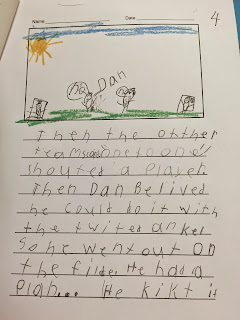 Name Date
4
no Dan
Then the otther
team
shouted a player.
Then Dan Belived
he could do it with
the twited ankel
So he went out on
the filde. He had a
plan... He kikt it